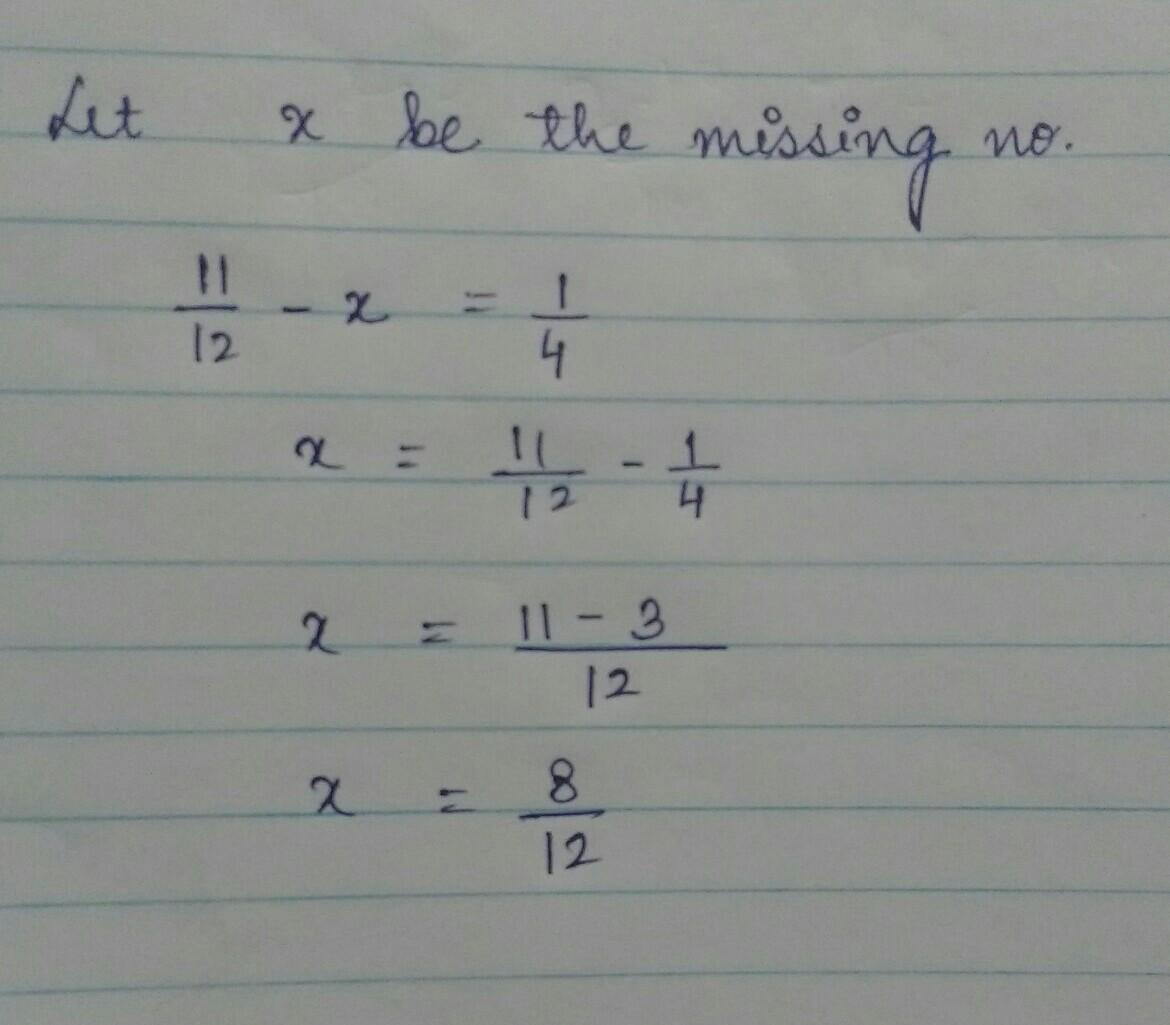 Let x be the missing no.
11/12 - x = 1/4
x = 11/12 - 1/4
x = 11 - 3/12
x = 8/12